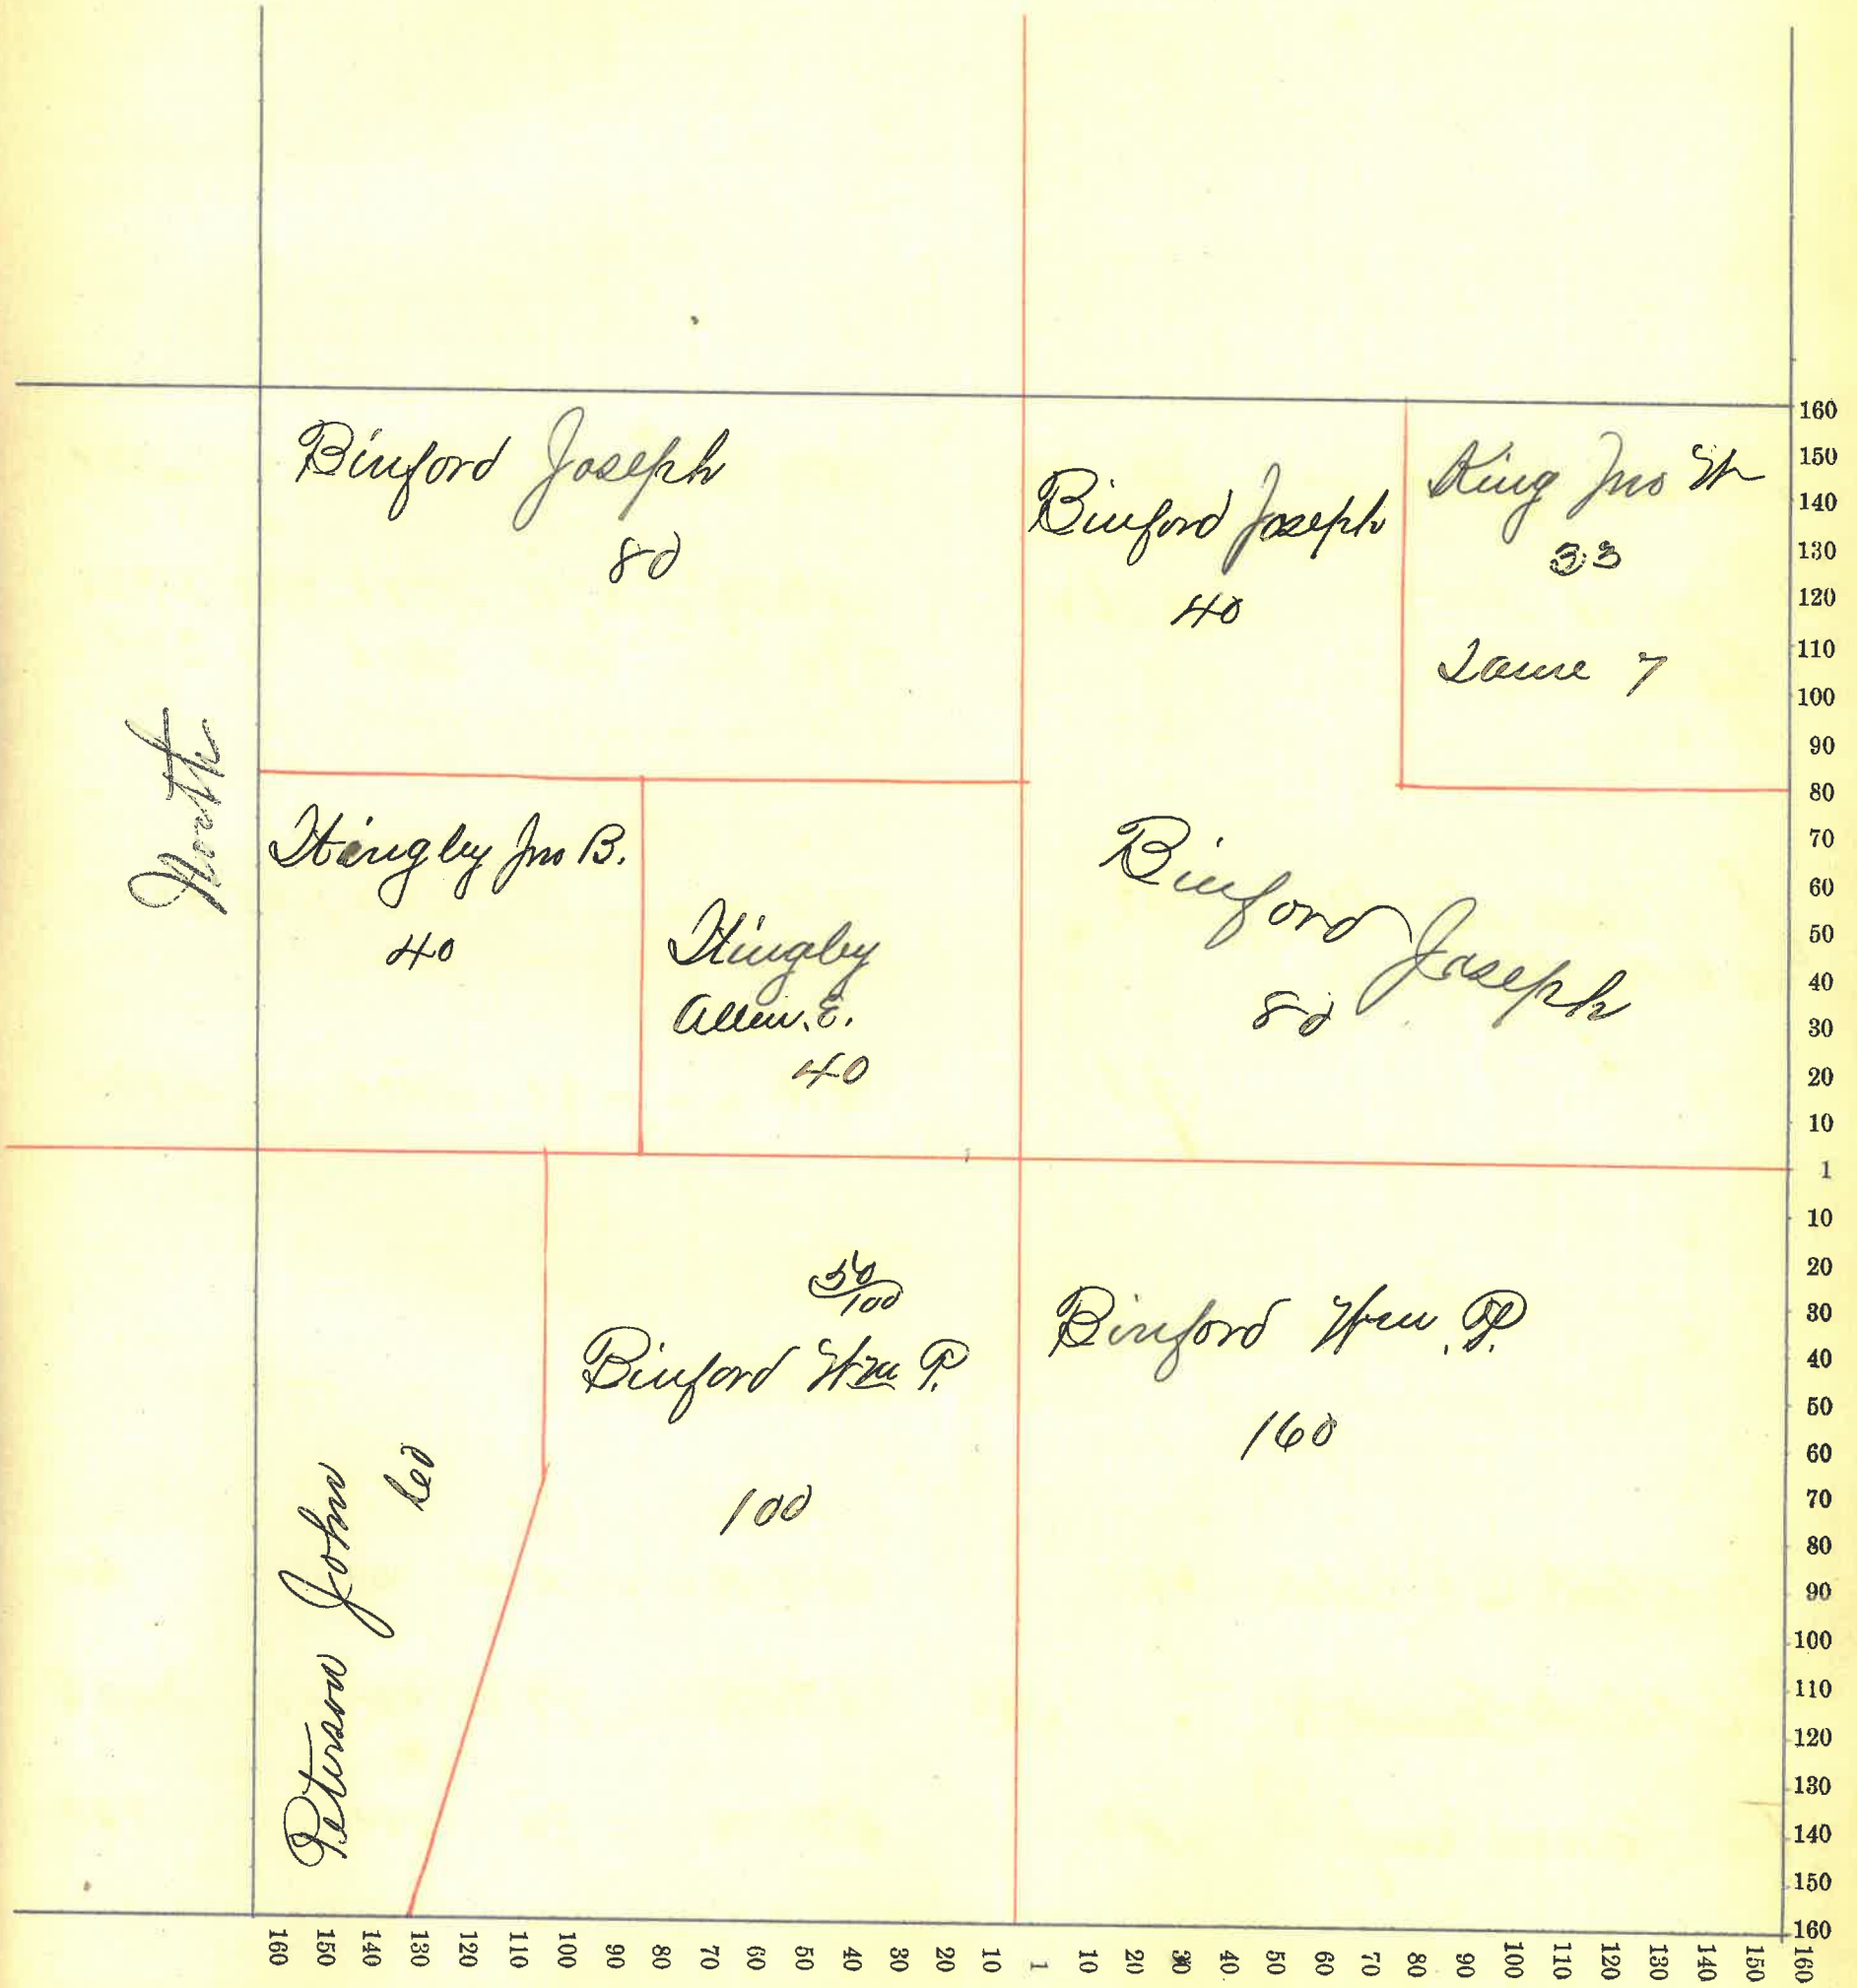 North
Binford Joseph
80
Binford Joseph
40
King Jno W
33
Same 7
Jno B.
40
Allen. E.
40
Binford Joseph
80
Peterson John
60
50/100
Binford Wm P.
100
Binford Wm. P.
160
160
150
140
130
120
110
100
90
80
70
60
50
40
30
20
10
1
10
20
30
40
50
60
70
80
90
100
110
120
130
140
150
160
160 150 140 130 120 110 100 90 80 70 60 50 40 30 20 10 1 10 20 30 40 50 60 70 80 90 100 110 120 130 140 150 160